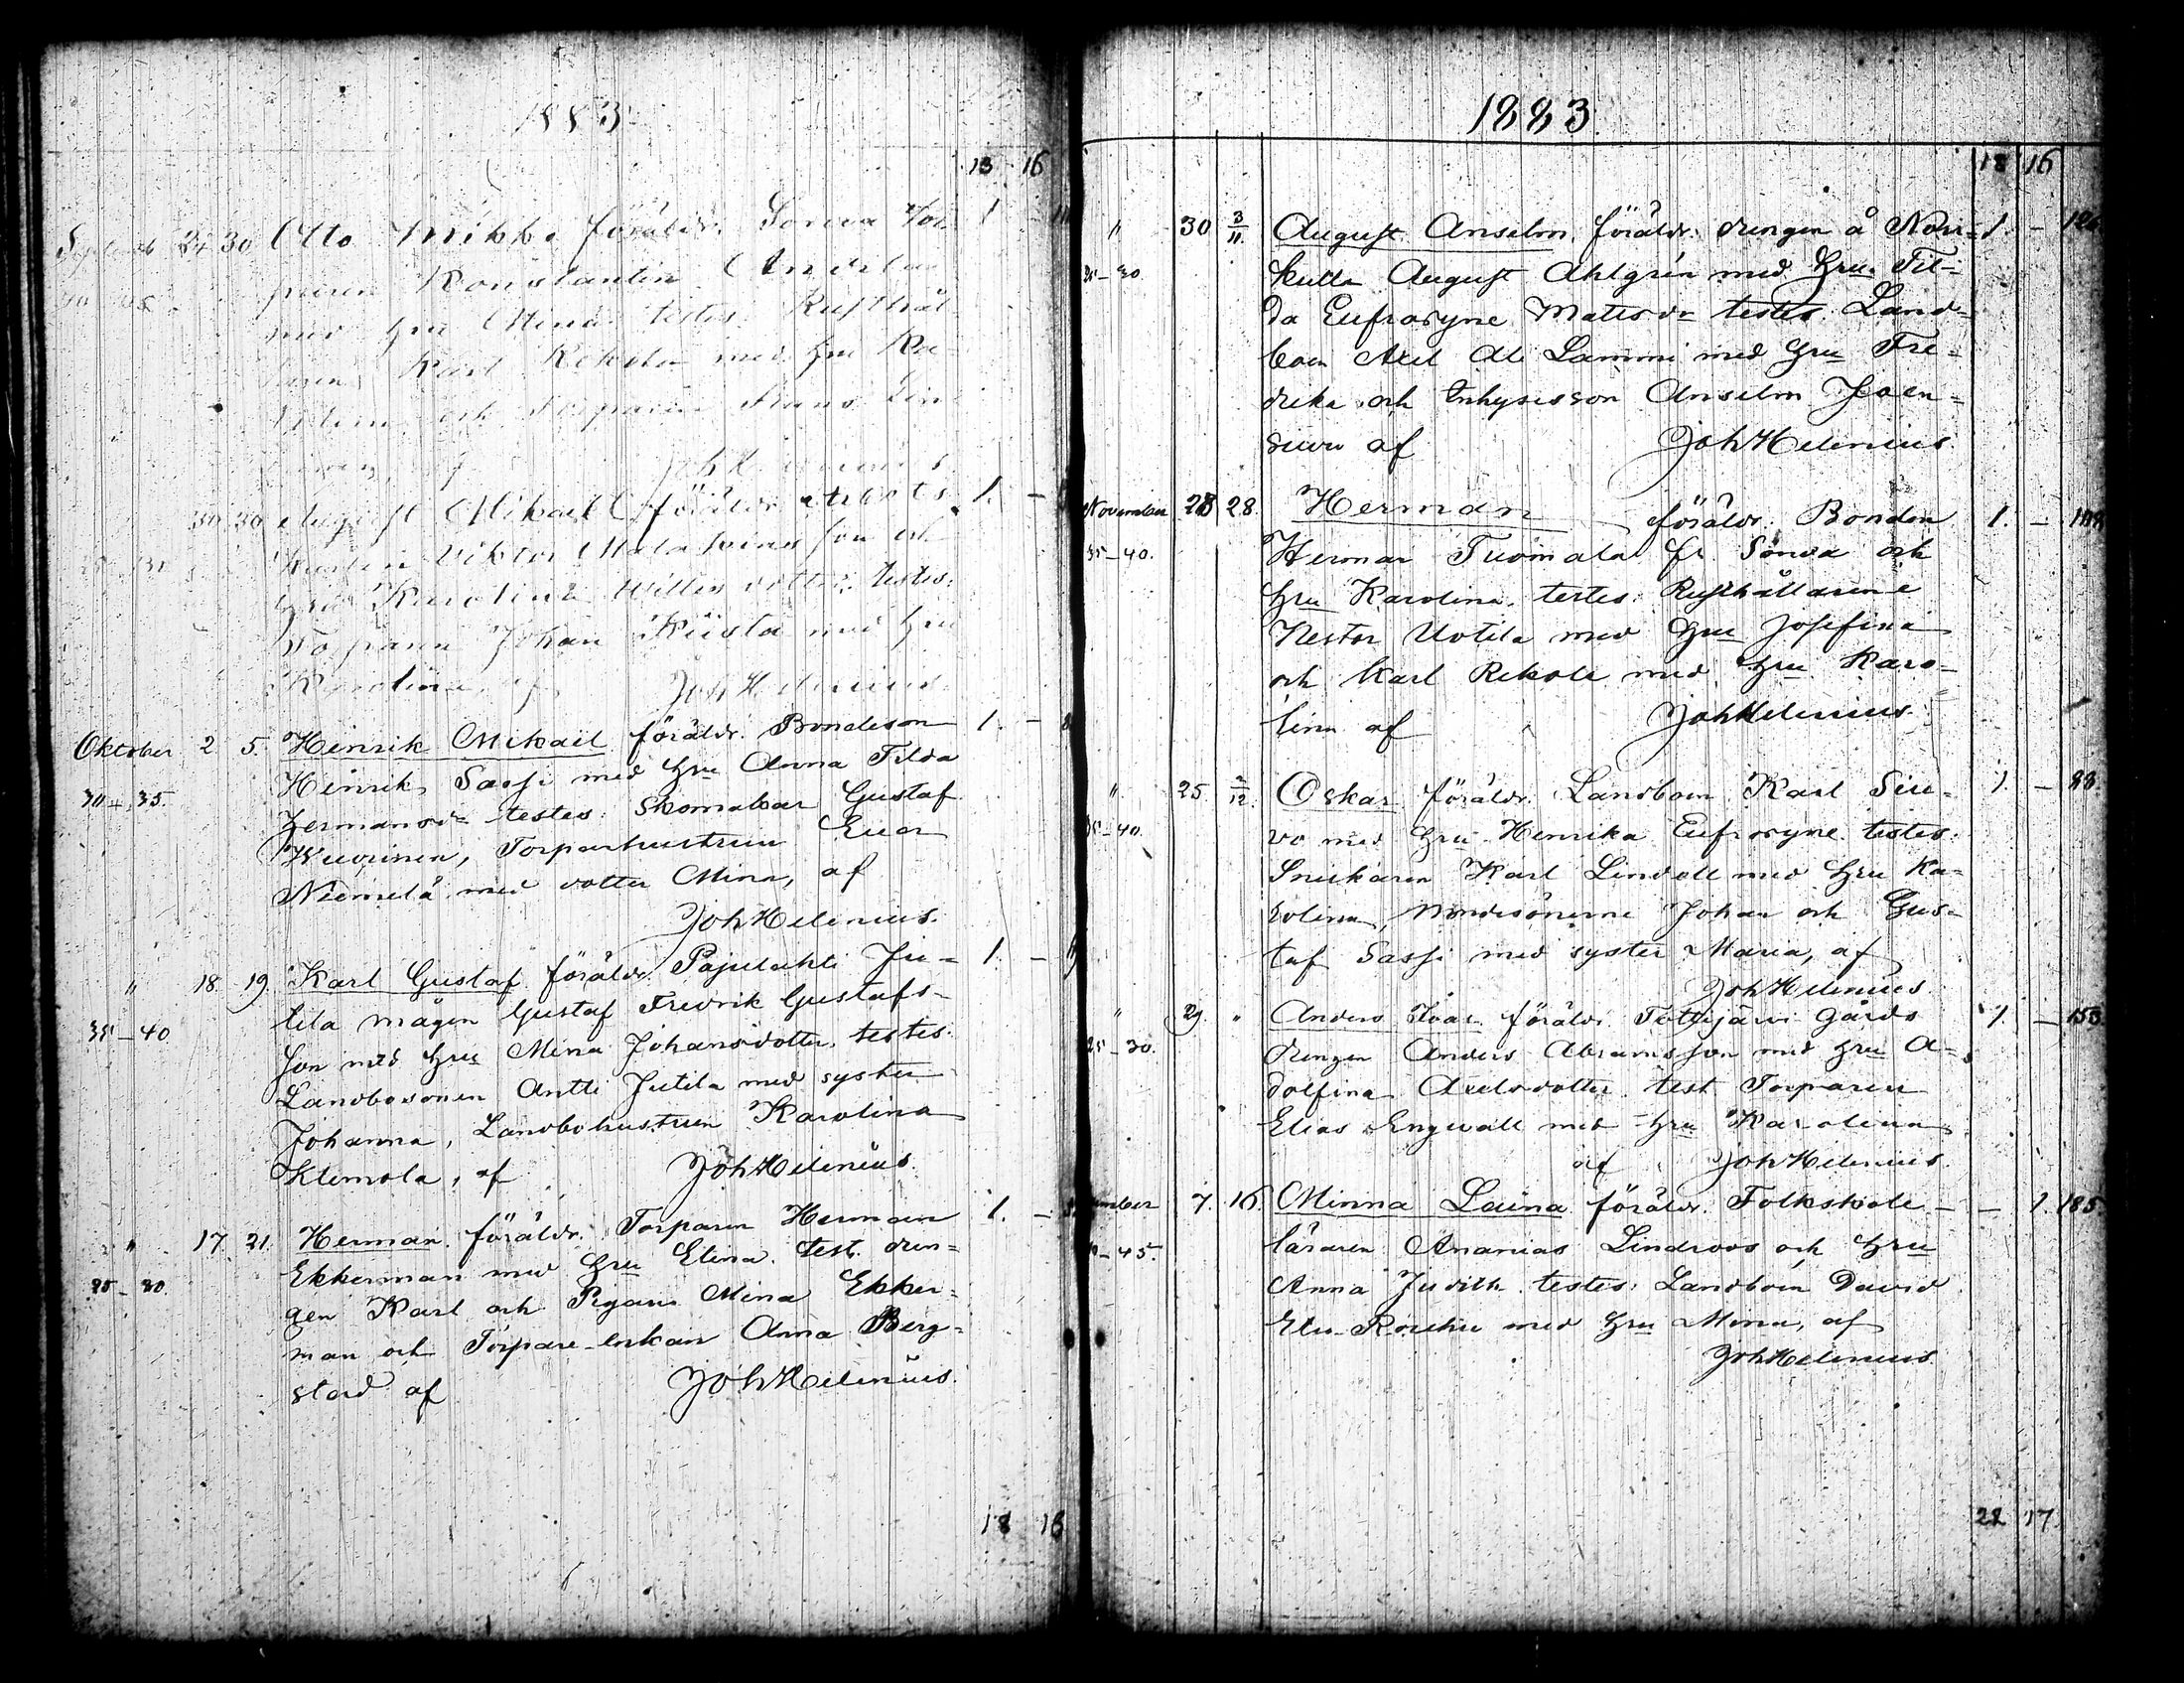 1883
13 16
24 30 Otto Mikko föräldr. Sonva Tor- 1
paren Konstantin
med hru Mina testes Rusthål
laren Karl Rekola med hru Ka
och Torparen Frans
Joh Helenius
30 30 August Mikael föräldr. Arbets 1. —
karlen Viktor son och
hru Karolina Willes dotter testes:
Torparen Johan Kiista med hru
Karolina, af Joh Helenius.
Oktober 2 5. Henrik Mikael föräldr. Bondeson 1. —
Henrik Sassi med hru Anna Tilda
30 – 35. Hermansdr testes: Skomakar Gustaf
Wuorinen, Torparhustrun Eva
Niemelä med dotter Mina, af
Joh Helenius.
" 18. 19. Karl Gustaf föräldr. Pajulahti Ju- 1. —
tila mågen Gustaf Fredrik Gustafs-
35 – 40 son med hru Mina Johansdotter, testes:
Landbosonen Antti Jutila med syster
Johanna, Landbohustrun Karolina
Klemola, af Joh Helenius.
" 17. 21. Herman föräldr. Torparen Herman 1. —
Ekkerman med hru Elina. test. dren-
25 – 30. gen Karl och Pigan Mina Ekker-
man och Torpare-enkan Anna Berg-
stad af Joh Helenius.
18 16
1883.
18 16
" 30 3/11 August Anselm, föräldr. drengen å Norr- 1. —
25–30. kulla August Ahlgrén med hru Til-
da Eufrosyne Mattsdr testes. Land-
boen Axel Ali Lammi med hru Fre-
drika och Inhysesson Anselm Joen-
suu af Joh Helenius.
November 28 28. Herman föräldr. Bonden 1. —
35–40. Herman Tuomala fr. Sonva och
hru Karolina. testes: Rusthållarene
Nestor Uotila med hru Josefina
och Karl Rekola med hru Karo-
lina af Joh Helenius.
" 25. 2/12. Oskar föräldr. Landboen Karl Sir- 1. — 88.
35–40. vo med hru Henrika Eufrosyne testes:
Snickaren Karl Lindell med hru Ka-
rolina, Bondesönerne Johan och Gus-
taf Sassi med syster Maria, af
Joh Helenius.
" 29. " Anders Ivar föräldr. Tottijärvi gårds 1. — 153.
25–30. drengen Anders Abramsson med hru A-
dolfina Axelsdotter. test Torparen
Elias Engwall med hru Karolina
af Joh Helenius.
ember 7. 16. Minna Laina föräldr. Folkskole- — 1. 185.
–45. läraren Ananias Lindroos och hru
Anna Judith. testes: Landboen David
med hru Mina, af
Joh Helenius.
22 17